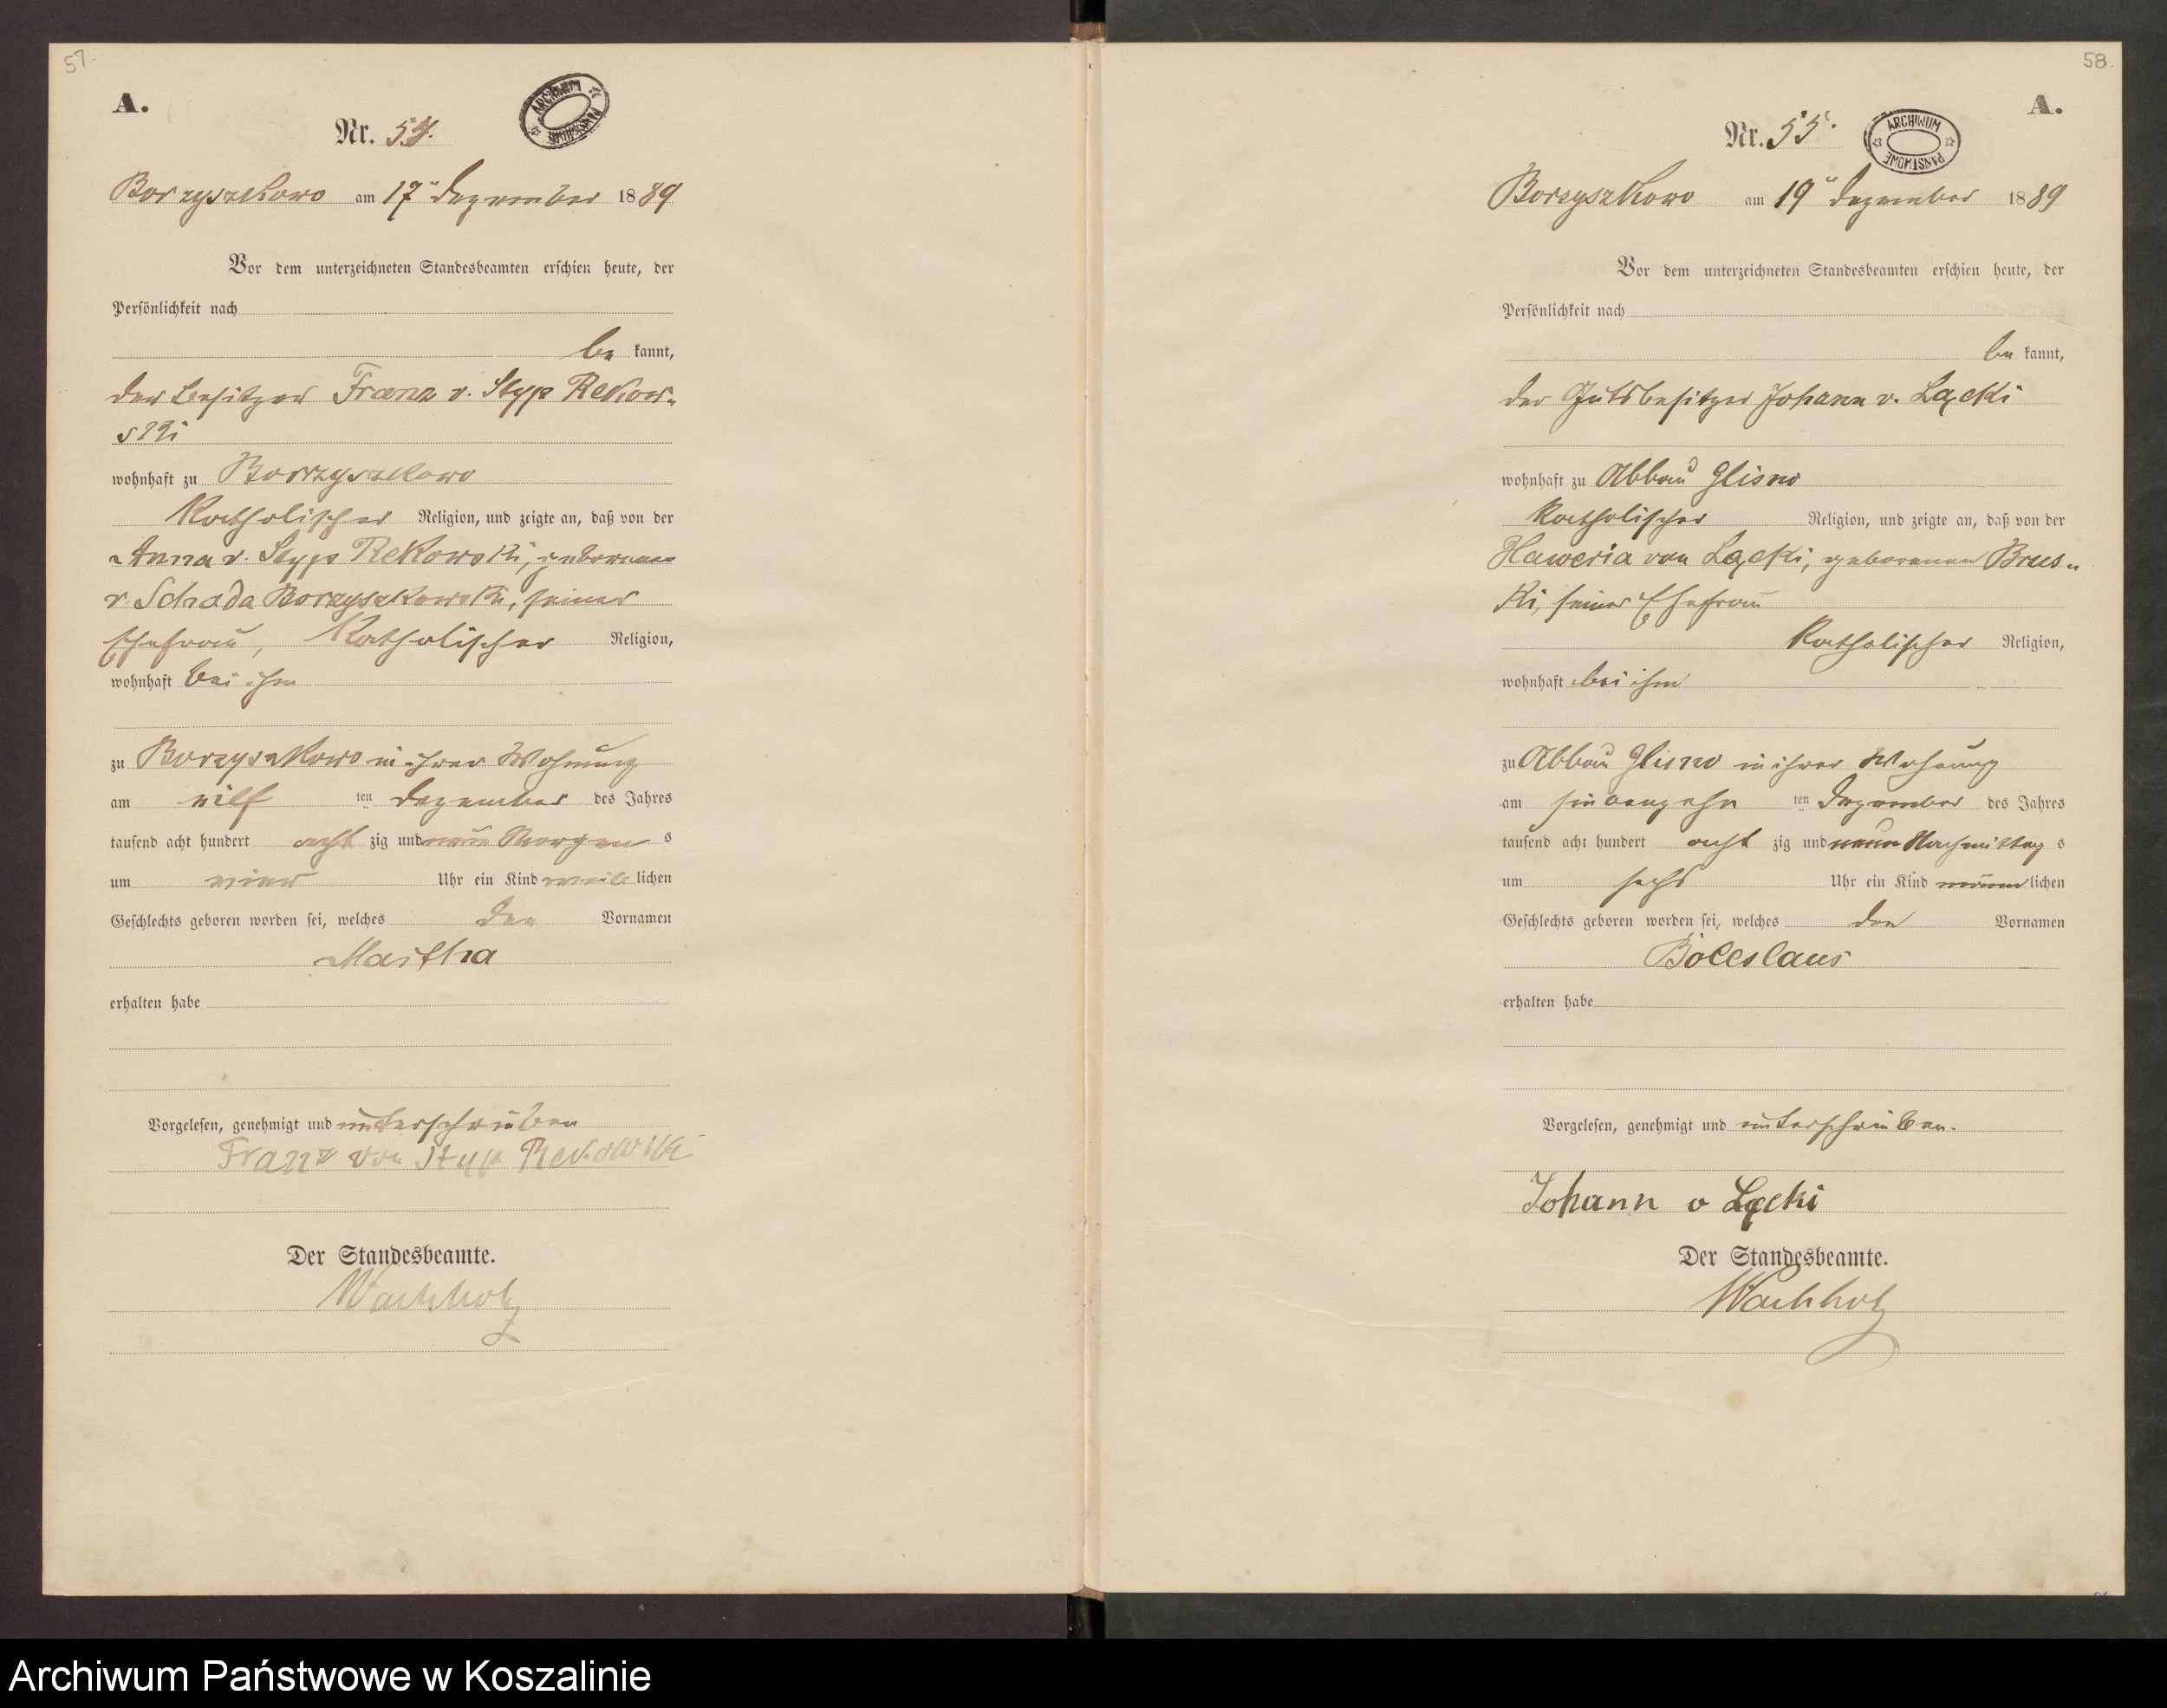 57.
A.
Nr. 54.
ARCHIWUM PAŃSTWOWE
Borzyszkowo am 17ten Dezember 1889
Vor dem unterzeichneten Standesbeamten erschien heute, der
Persönlichkeit nach
be kannt,
der Besitzer Franz v. Styp Rekow-
ski
wohnhaft zu Borzyszkowo
katholischer Religion, und zeigte an, daß von der
Anna v. Styp Rekowski, geborenen
v. Schada Borzyszkowski, seiner
Ehefrau, katholischer Religion,
wohnhaft bei ihm
zu Borzyszkowo in ihrer Wohnung
am eilf ten Dezember des Jahres
tausend acht hundert acht zig und neun Morgen s
um vier Uhr ein Kind weib lichen
Geschlechts geboren worden sei, welches den Vornamen
Martha
erhalten habe
Vorgelesen, genehmigt und unterschrieben
Franz von Styp Rekowski
Der Standesbeamte.
Wachholz
58.
A.
Nr. 55.
ARCHIWUM PAŃSTWOWE
Borzyszkowo am 19ten Dezember 1889
Vor dem unterzeichneten Standesbeamten erschien heute, der
Persönlichkeit nach
be kannt,
der Gutsbesitzer Johann v. Łącki
wohnhaft zu Abbau Glisno
katholischer Religion, und zeigte an, daß von der
Haweria von Łącki, geborenen Brus-
ki, seiner Ehefrau
katholischer Religion,
wohnhaft bei ihm
zu Abbau Glisno in ihrer Wohnung
am siebenzehn ten Dezember des Jahres
tausend acht hundert acht zig und neun Nachmittag s
um sechs Uhr ein Kind männ lichen
Geschlechts geboren worden sei, welches den Vornamen
Boleslaus
erhalten habe
Vorgelesen, genehmigt und unterschrieben.
Johann v Łącki
Der Standesbeamte.
Wachholz
Archiwum Państwowe w Koszalinie